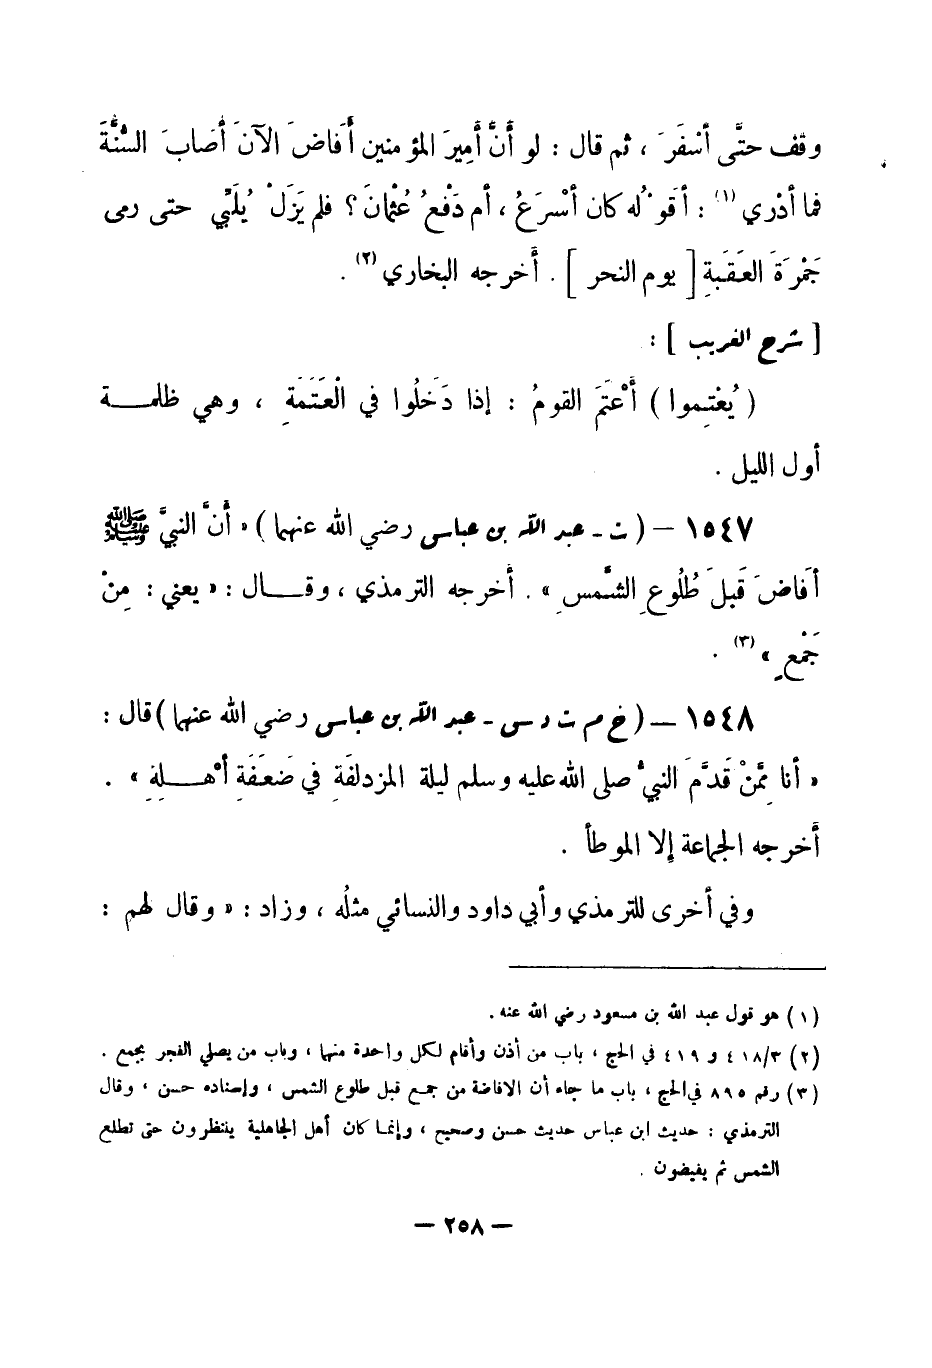 وقف حتَّى أسْفَرَ ، ثم قال : لو أنَّ أَمِيرَ المؤمنين أَفاضَ الآنَ أَصَابَ السُّنَّةَ
فما أدْري (١) : أَقَوْلُه كان أسْرَعُ ، أم دَفْعُ عُثْمانَ ؟ فلم يَزَلْ يُلَبِّي حتى رمى
جَمْرَةَ العَقَبةِ [ يوم النحر ] . أخرجه البخاري (٢) .
[ شرح الغريب ] :
( يُعْتِموا ) أَعْتَمَ القومُ : إذا دَخَلُوا في الْعَتَمَةِ ، وهي ظلمة
أول الليل .
١٥٤٧ – ( ت - عبد اللّه بن عباس رضي الله عنهما ) « أنَّ النبيَّ ﷺ
أَفاضَ قَبلَ طُلُوعِ الشَّمسِ » . أخرجه الترمذي ، وقال : « يعني : مِنْ
جَمْعٍ » (٣) .
١٥٤٨ – ( خ م ت د س - عبد اللّه بن عباس رضي الله عنهما ) قال :
« أنا مِمَّنْ قَدَّمَ النبيُّ صلى الله عليه وسلم ليلة المزدلفَةِ في ضَعَفَةِ أهْلِهِ » .
أخرجه الجماعة إلا الموطأ .
وفي أخرى للترمذي وأبي داود والنسائي مثلُه ، وزاد : « وقال لهم :
(١) هو قول عبد الله بن مسعود رضي الله عنه .
(٢) ٤١٨/٣ و ٤١٩ في الحج ، باب من أذن وأقام لكل واحدة منهما ، وباب من يصلي الفجر بجمع .
(٣) رقم ٨٩٥ في الحج ، باب ما جاء أن الافاضة من جمع قبل طلوع الشمس ، وإسناده حسن ، وقال
الترمذي : حديث ابن عباس حديث حسن وصحيح ، وإنما كان أهل الجاهلية ينتظرون حتى تطلع
الشمس ثم يفيضون .
– ٢٥٨ –